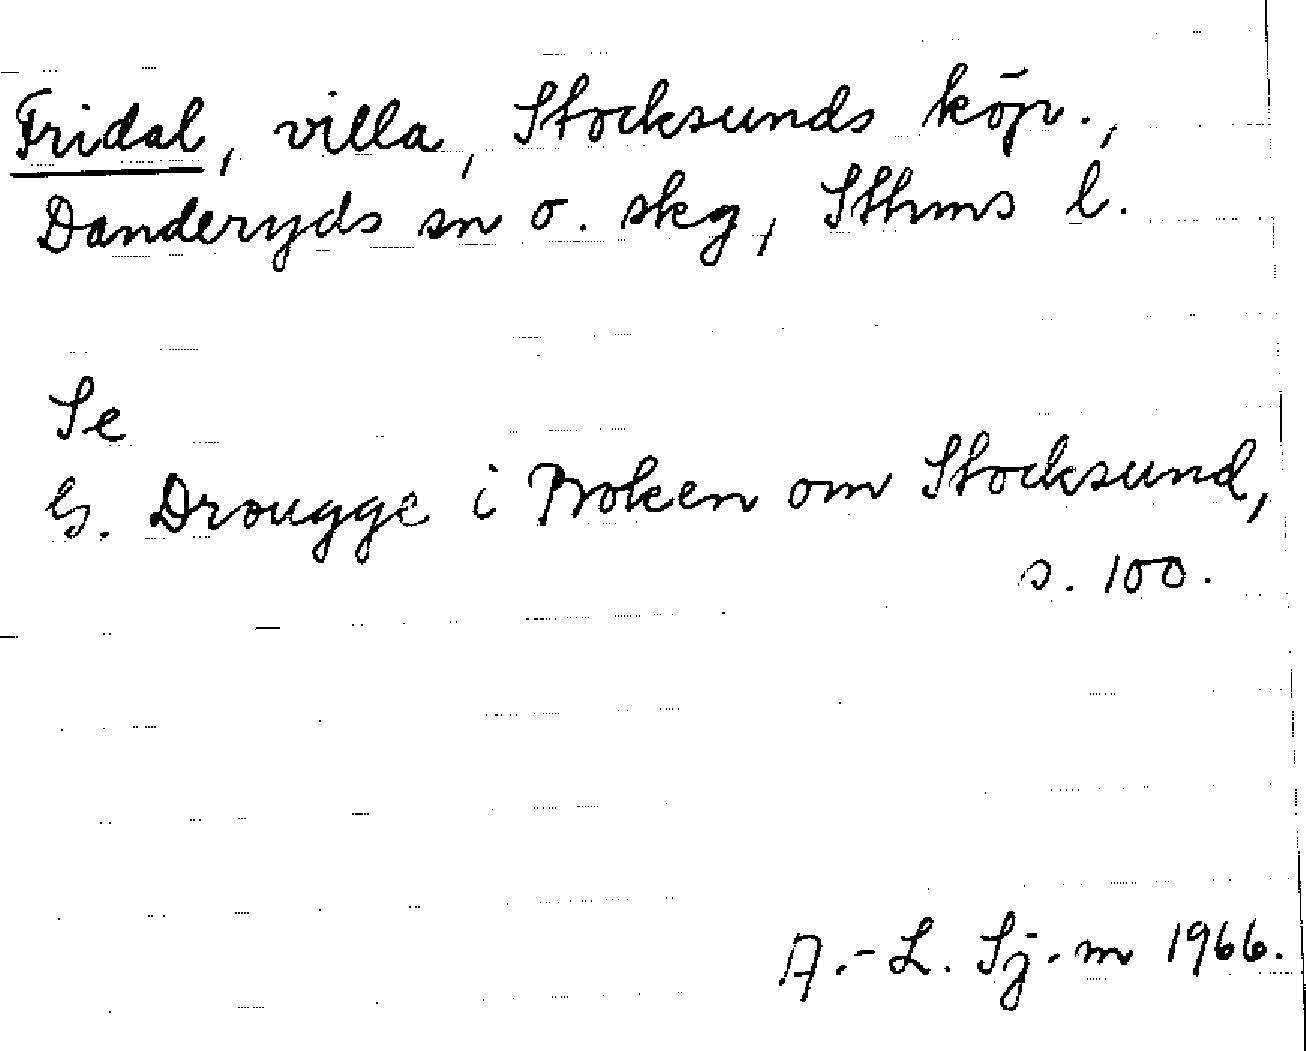 Fridal, villa, Stocksunds köp.,
Danderyds sn o. skg, Sthms l.
Se
G. Drougge i Boken om Stocksund,
s. 100.
A.-L. Sj.-m 1966.